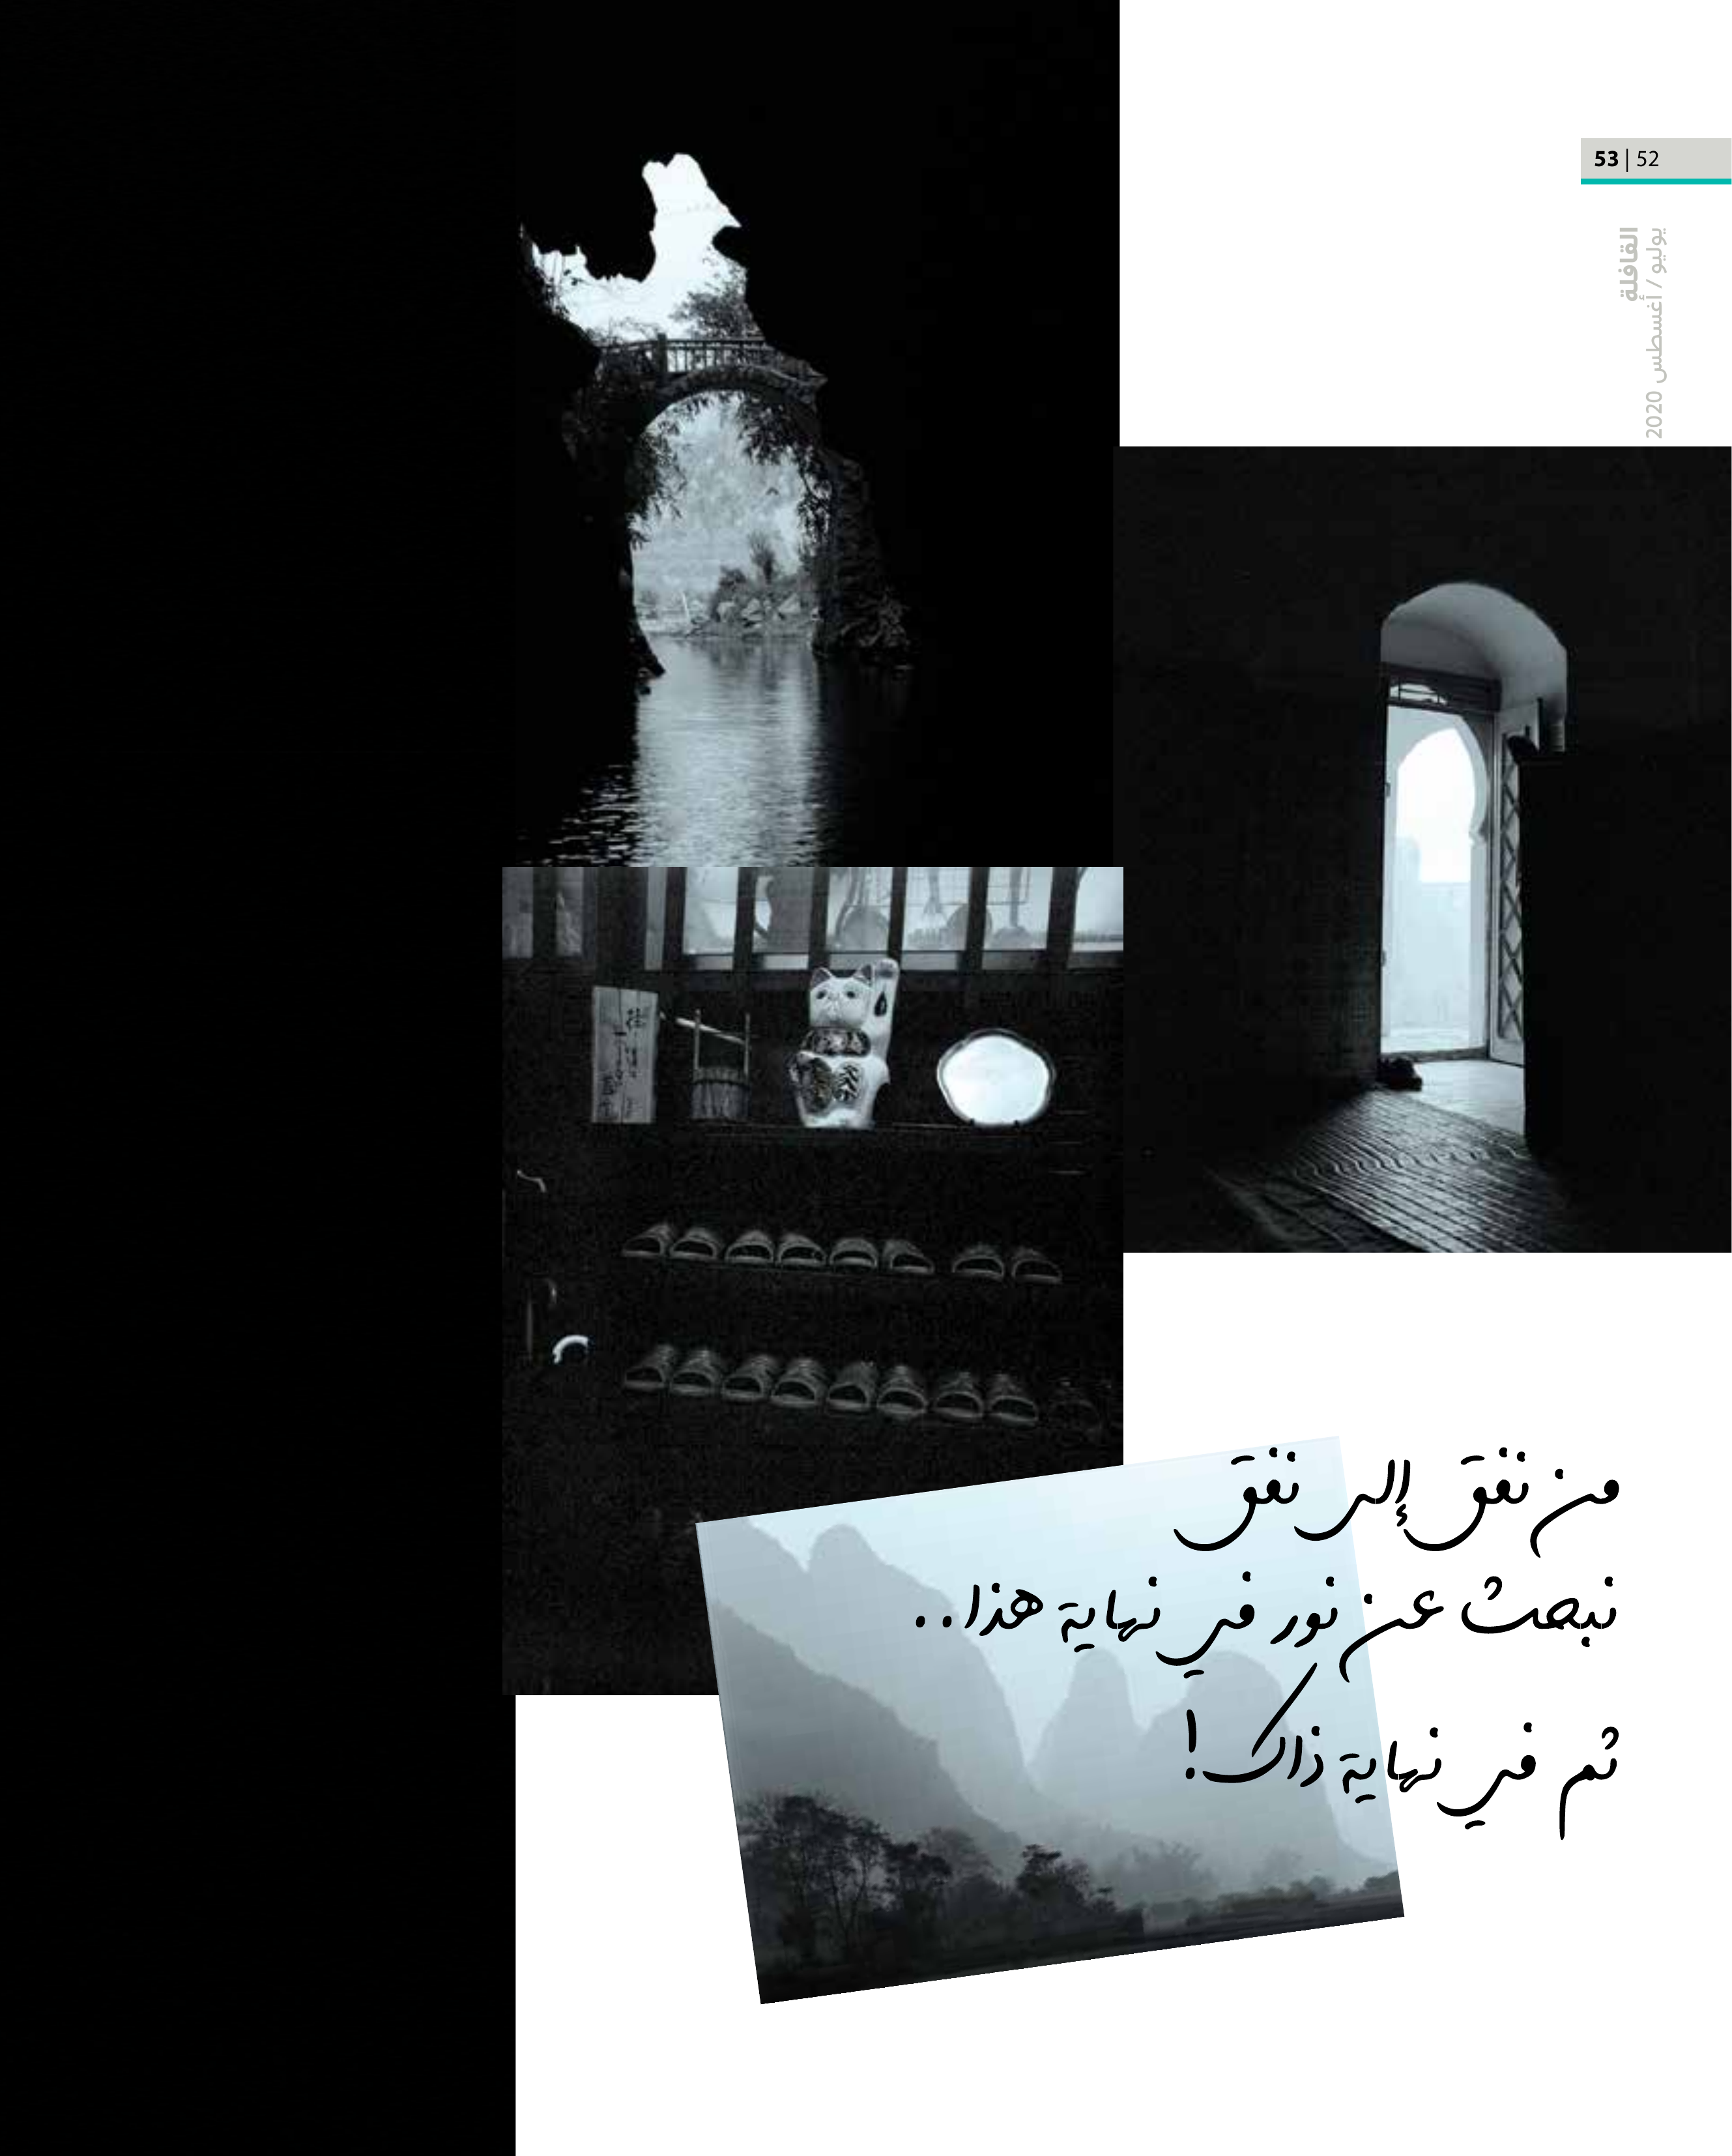 53 | 52
القافلة
يوليو / أغسطس 2020
من نفق إلى نفق
نبحث عن نور في نهاية هذا..
ثم في نهاية ذاك!